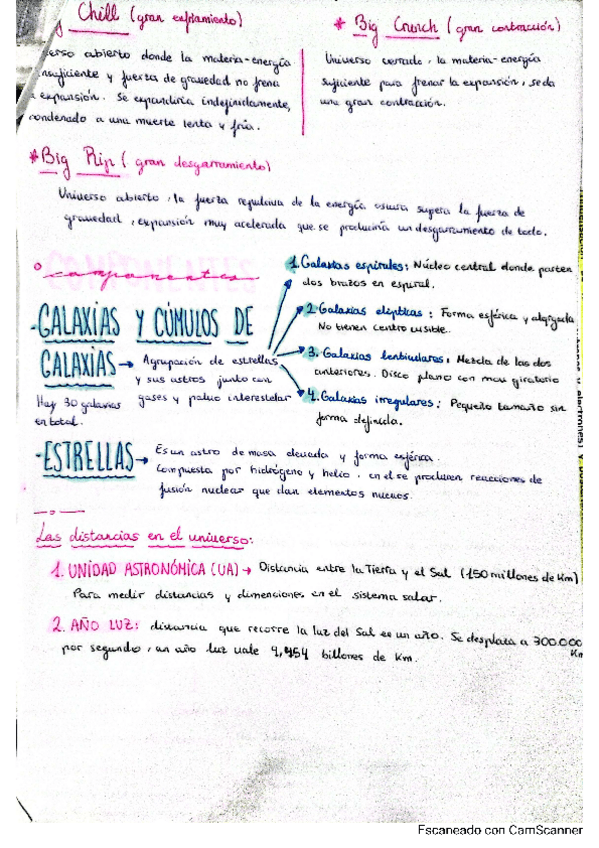 Chill (gran enfriamiento)
erso abierto donde la materia-energía
insuficiente y fuerza de gravedad no frena
expansión. Se expandiría indefinidamente,
condenado a una muerte lenta y fría.
* Big Crunch (gran contracción)
Universo cerrado, la materia-energía
suficiente para frenar la expansión, se da
una gran contracción.
* Big Rip (gran desgarramiento)
Universo abierto, la fuerza repulsiva de la energía oscura supera la fuerza de
gravedad, expansión muy acelerada que se produciría un desgarramiento de todo.
componentes
-GALAXIAS Y CÚMULOS DE
GALAXIAS → Agrupación de estrellas
y sus astros junto con
gases y polvo interestelar
Hay 30 galaxias
en total.
1. Galaxias espirales: Núcleo central donde parten
dos brazos en espiral.
2. Galaxias elípticas: Forma esférica y alargada
No tienen centro visible.
3. Galaxias lenticulares: Mezcla de las dos
anteriores. Disco plano con mov giratorio
4. Galaxias irregulares: Pequeño tamaño sin
forma definida.
-ESTRELLAS → Es un astro de masa elevada y forma esférica.
Compuesta por hidrógeno y helio. en el se producen reacciones de
fusión nuclear que dan elementos nuevos.
Las distancias en el universo:
1. UNIDAD ASTRONÓMICA (UA) → Distancia entre la Tierra y el Sol (150 millones de Km)
Para medir distancias y dimenciones en el sistema solar.
2. AÑO LUZ: distancia que recorre la luz del Sol en un año. Se desplaza a 300.000 Km
por segundo, un año luz vale 9,454 billones de Km.
Escaneado con CamScanner